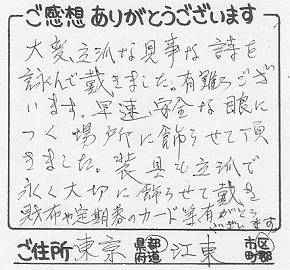 ご感想 ありがとうございます
大変立派な見事な詩を
詠んで戴きました。有難うござ
います。早速安全な眼に
つく場所に飾らせて頂
きました。装具も立派で
永く大切に飾らせて戴き
財布や定期券のカード等有がとう
ございます
ご住所 東京 都道府県 江東 市区町郡